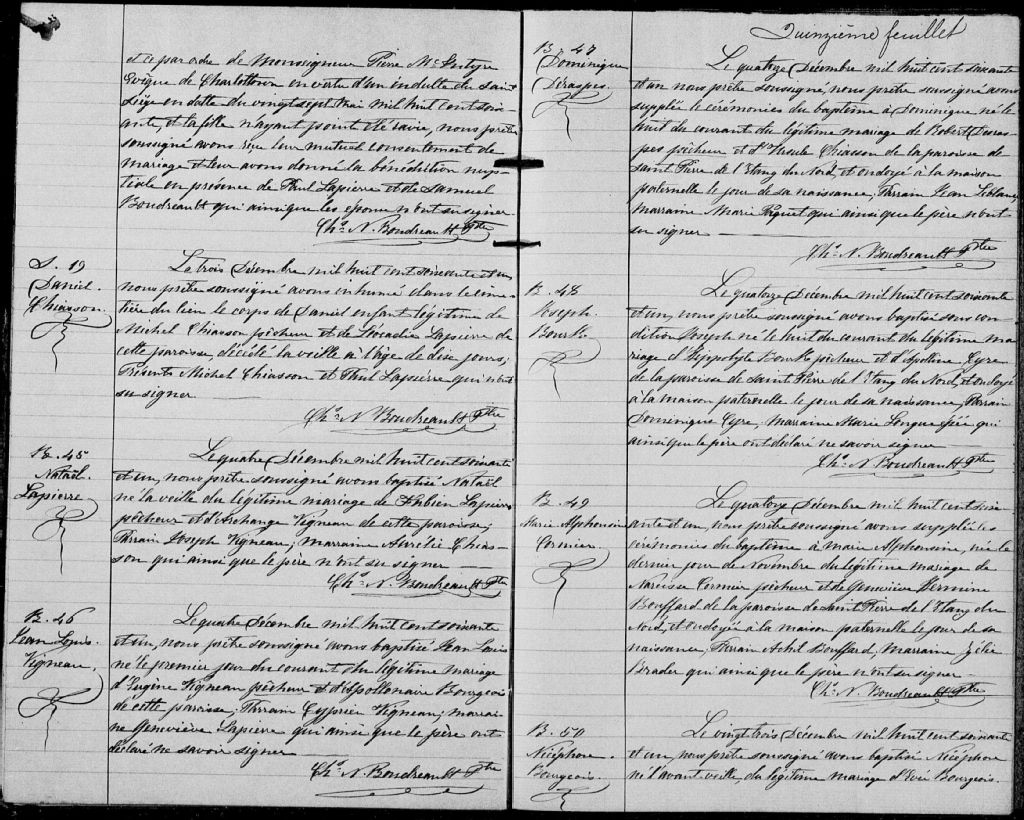 et ce par ordre de Monseigneur Pierre McIntyre
Evêque de Charlottown en vertu d'un indulte du saint
Siège en datte du vingt sept Mai mil huit cent soix-
ante, et la fille n'ayant point été ravie, nous prêtre
soussigné avons reçu leur mutuel consentement de
mariage et leur avons donné la bénédiction nup-
tiale en présence de Paul Lapierre et de Samuel
Boudreault qui ainsi que les époux n'ont su signer
Chs. N. Boudreault Ptre
S. 19
Daniel
Chiasson.
Le trois Décembre mil huit cent soixante et un
nous prêtre soussigné avons inhumé dans le cime-
tière du lieu le corps de Daniel enfant légitime de
Michel Chiasson pêcheur et de Léocadie Lapierre de
cette paroisse, décédé la veille à l'âge de dix jours;
Présents Michel Chiasson et Paul Lapierre qui n'ont
su signer
Chs. N. Boudreault Ptre
B. 45
Nataël
Lapierre.
Le quatre Décembre mil huit cent soixante
et un, nous prêtre soussigné avons baptisé Nataël
né la veille du légitime mariage de Fabien Lapierre
pêcheur et d'Archange Vigneau de cette paroisse;
Parrain Joseph Vigneau; marraine Aurélie Chias-
son qui ainsi que le père n'ont su signer
Chs. N. Boudreault Ptre
B. 46
Jean Louis
Vigneau.
Le quatre Décembre mil huit cent soixante
et un, nous prêtre soussigné avons baptisé Jean Louis
né le premier jour du courant du légitime mariage
d'Eugène Vigneau pêcheur et d'Apollonaire Bourgeois
de cette paroisse; Parrain Cyprien Vigneau; marrai
ne Geneviève Lapierre qui ainsi que le père ont
déclaré ne savoir signer
Chs. N. Boudreault Ptre
Quinzième feuillet
B. 47
Dominique
Déraspes.
Le quatorze Décembre mil huit cent soixante
et un nous prêtre soussigné, nous prêtre soussigné avons
supplée le cérémonies du baptême à Dominique né le
huit du courant du légitime mariage de Robert Deras
pes pêcheur et d'Ursule Chiasson de la paroisse de
Saint Pierre de l'Etang du Nord, et ondoyé à la maison
paternelle le jour de sa naissance, Parrain Jean Leblanc,
marraine Marie Paquet qui ainsi que le père n'ont
su signer
Chs. N. Boudreault Ptre
B. 48
Joseph
Bourk.
Le quatorze Décembre mil huit cent soixante
et un, nous prêtre soussigné avons baptisé sous con
dition Joseph né le huit du courant du légitime ma
riage d'Hyppolyte Bourk pêcheur et d'Apolline Cyre
de la paroisse de Saint Pierre de l'Etang du Nord, et ondoyé
à la maison paternelle le jour de sa naissance, Parrain
Dominique Cyre, marraine Marie Longue épée qui
ainsi que le père ont déclaré ne savoir signer
Chs. N. Boudreault Ptre
B. 49
Marie Alphonsine
Cormier.
Le quatorze Décembre mil huit cent soix-
ante et un, nous prêtre soussigné avons supplée les
cérémonies du baptême à marie Alphonsine, née le
dernier jour de Novembre du légitime mariage de
Narcisse Cormier pêcheur et de Geneviève Hermine
Bouffard de la paroisse de Saint Pierre de l'Etang du
Nord, et ondoyée à la maison paternelle le jour de sa
naissance, Parrain Achel Bouffard, marraine Zélie
Brader qui ainsi que le père n'ont su signer
Chs. N. Boudreault Ptre
B. 50
Nicéphore
Bourgeois.
Le vingt trois Décembre mil huit cent soixante
et un, nous prêtre soussigné avons baptisé Nicéphore
né l'avant veille, du légitime mariage d'Evée Bourgeois.